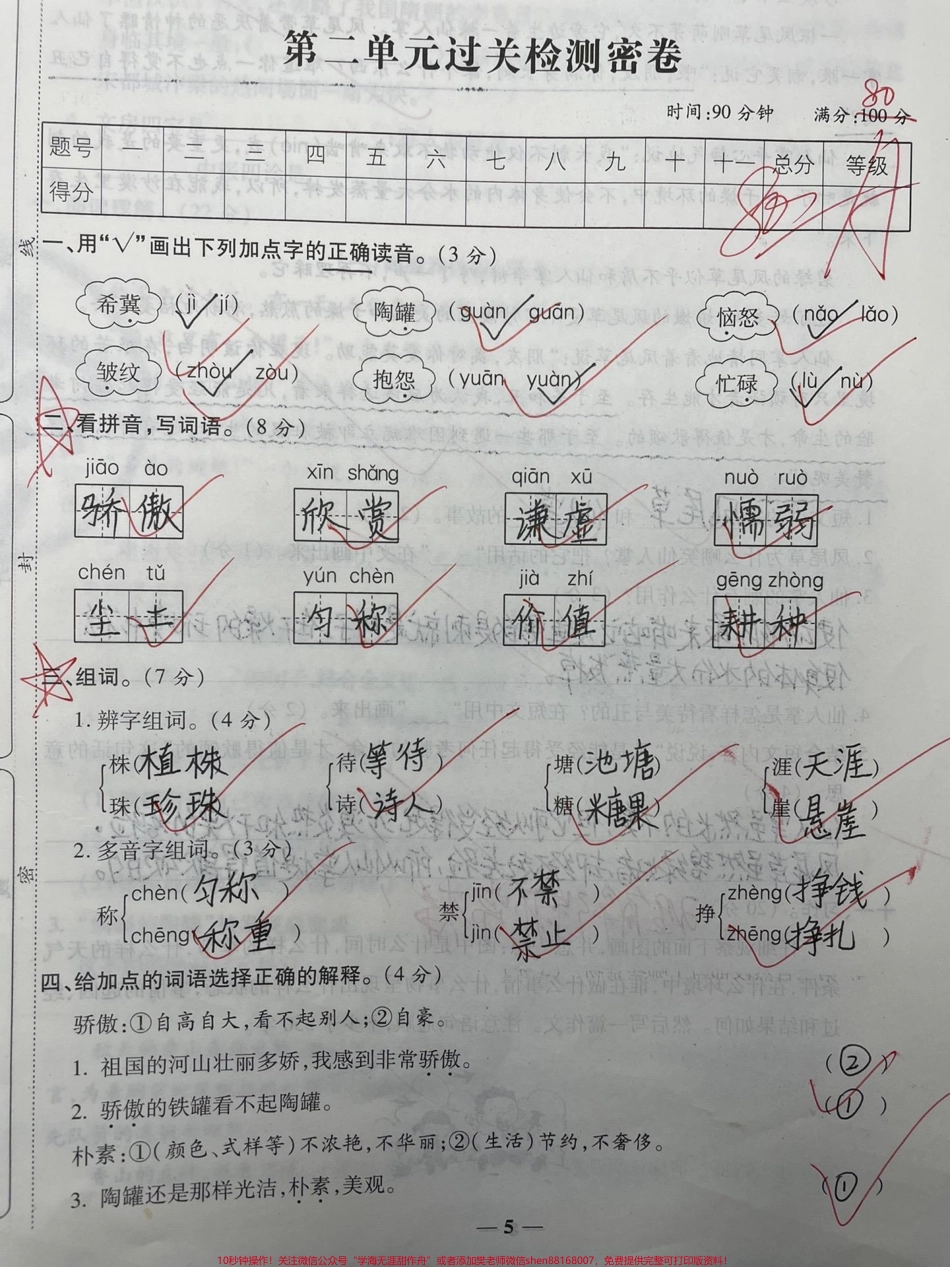 第二单元过关检测密卷
80
时间:90分钟 满分:100分
题号 一 二 三 四 五 六 七 八 九 十 十一 总分 等级
得分
一、用“√”画出下列加点字的正确读音。(3分)
希冀 (jì√ jí) 陶罐 (guàn√ guān) 恼怒 (nǎo√ lǎo)
皱纹 (zhòu√ zòu) 抱怨 (yuān yuàn√) 忙碌 (lù√ nù)
二、看拼音,写词语。(8分)
jiāo ào xīn shǎng qiān xū nuò ruò
骄傲 欣赏 谦虚 懦弱
chén tǔ yún chèn jià zhí gēng zhòng
尘土 匀称 价值 耕种
三、组词。(7分)
1. 辨字组词。(4分)
株(植株) 待(等待) 塘(池塘) 涯(天涯)
珠(珍珠) 诗(诗人) 糖(糖果) 崖(悬崖)
2. 多音字组词。(3分)
称 chèn(匀称) 禁 jīn(不禁) 挣 zhèng(挣钱)
chēng(称重) jìn(禁止) zhēng(挣扎)
四、给加点的词语选择正确的解释。(4分)
骄傲:①自高自大,看不起别人;②自豪。
1. 祖国的河山壮丽多娇,我感到非常骄傲。 (②)
2. 骄傲的铁罐看不起陶罐。 (①)
朴素:①(颜色、式样等)不浓艳,不华丽;②(生活)节约,不奢侈。
3. 陶罐还是那样光洁,朴素,美观。 (①)
— 5 —
线
封
密
10秒钟操作!关注微信公众号“学海无涯甜作舟”或者添加樊老师微信shen88168007,免费提供完整可打印版资料!